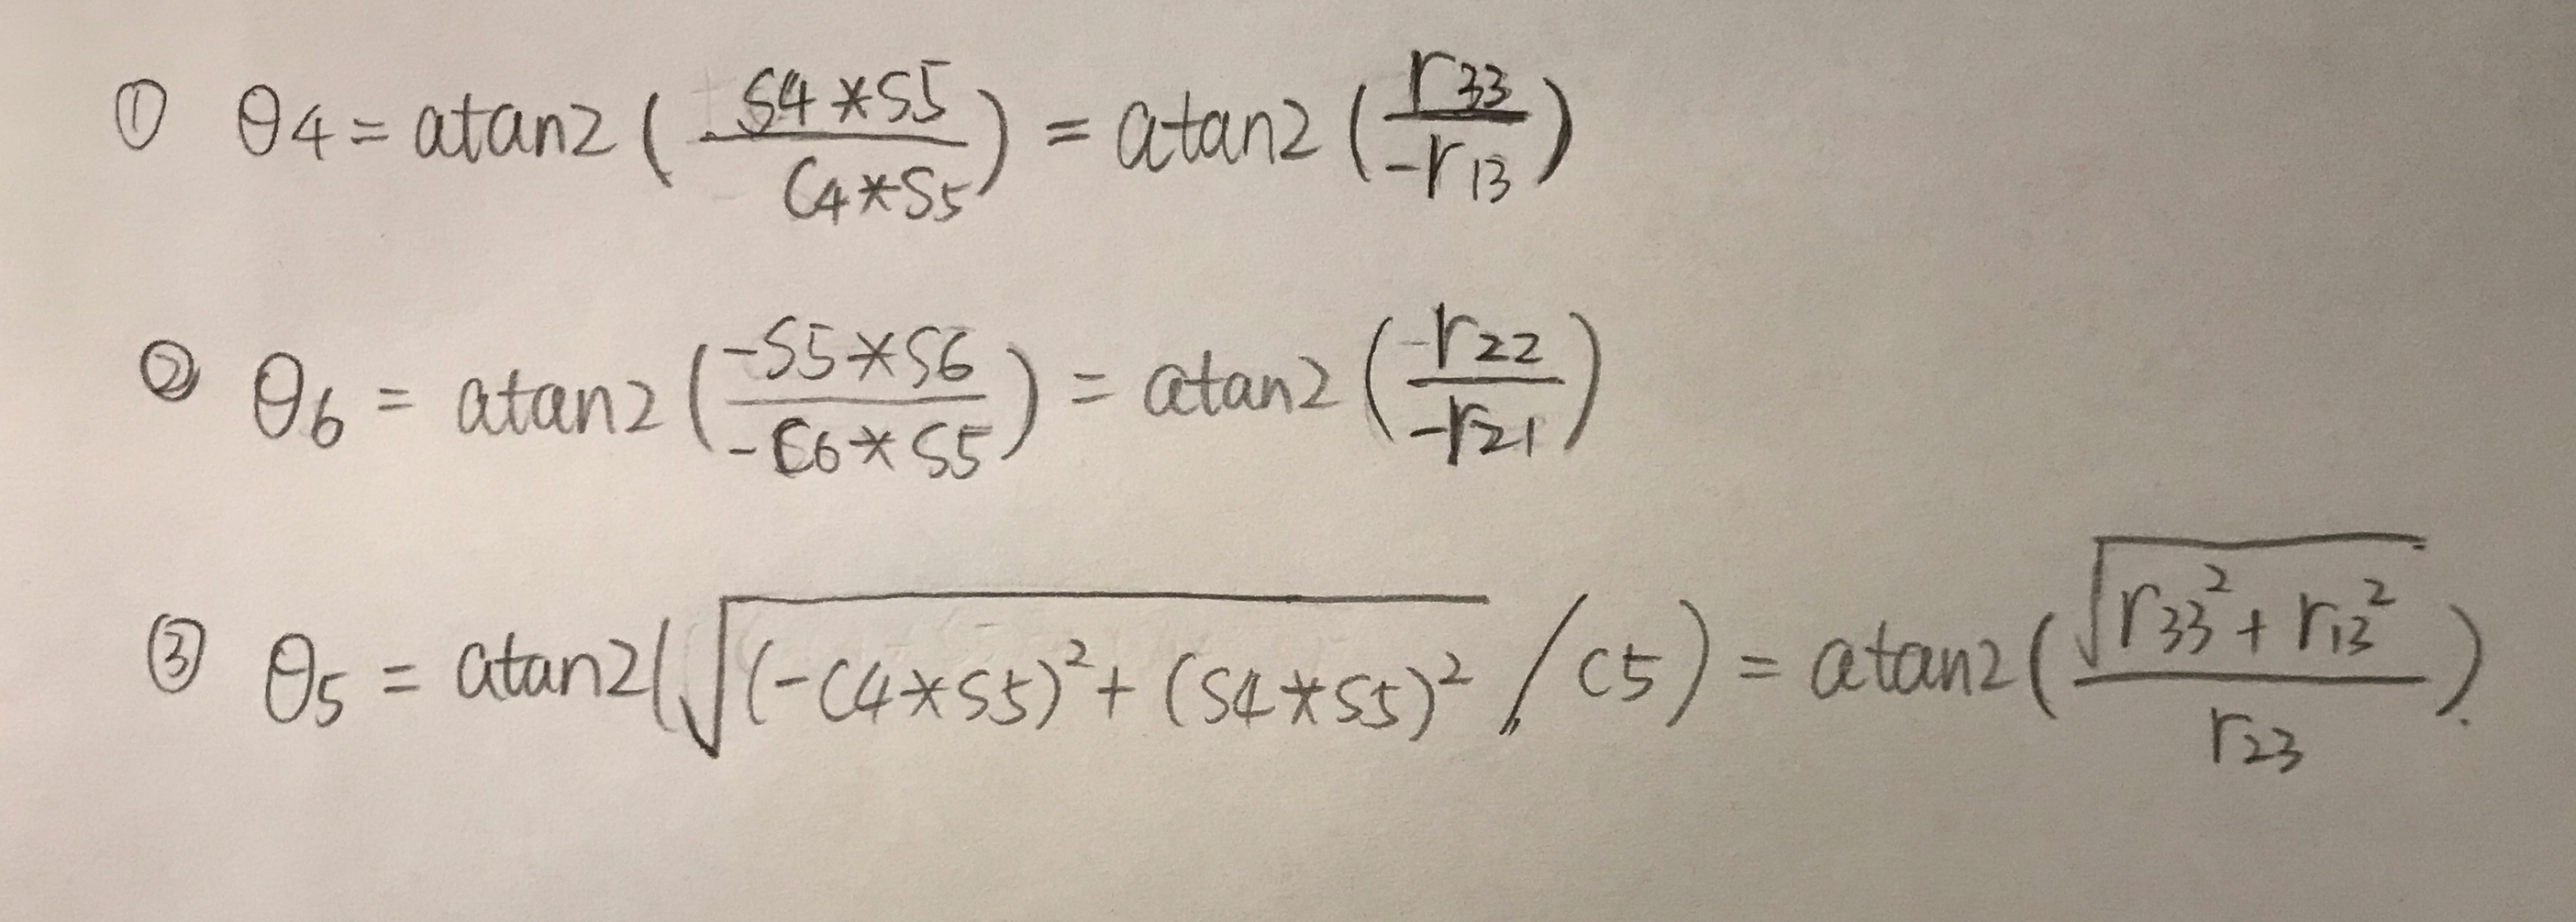 ① θ4 = atan2 ( S4*S5 / C4*S5 ) = atan2 ( r33 / -r13 )
② θ6 = atan2 ( -S5*S6 / -C6*S5 ) = atan2 ( -r22 / -r21 )
③ θ5 = atan2 ( √((-C4*S5)² + (S4*S5)²) / C5 ) = atan2 ( √(r33² + r13²) / r23 ).